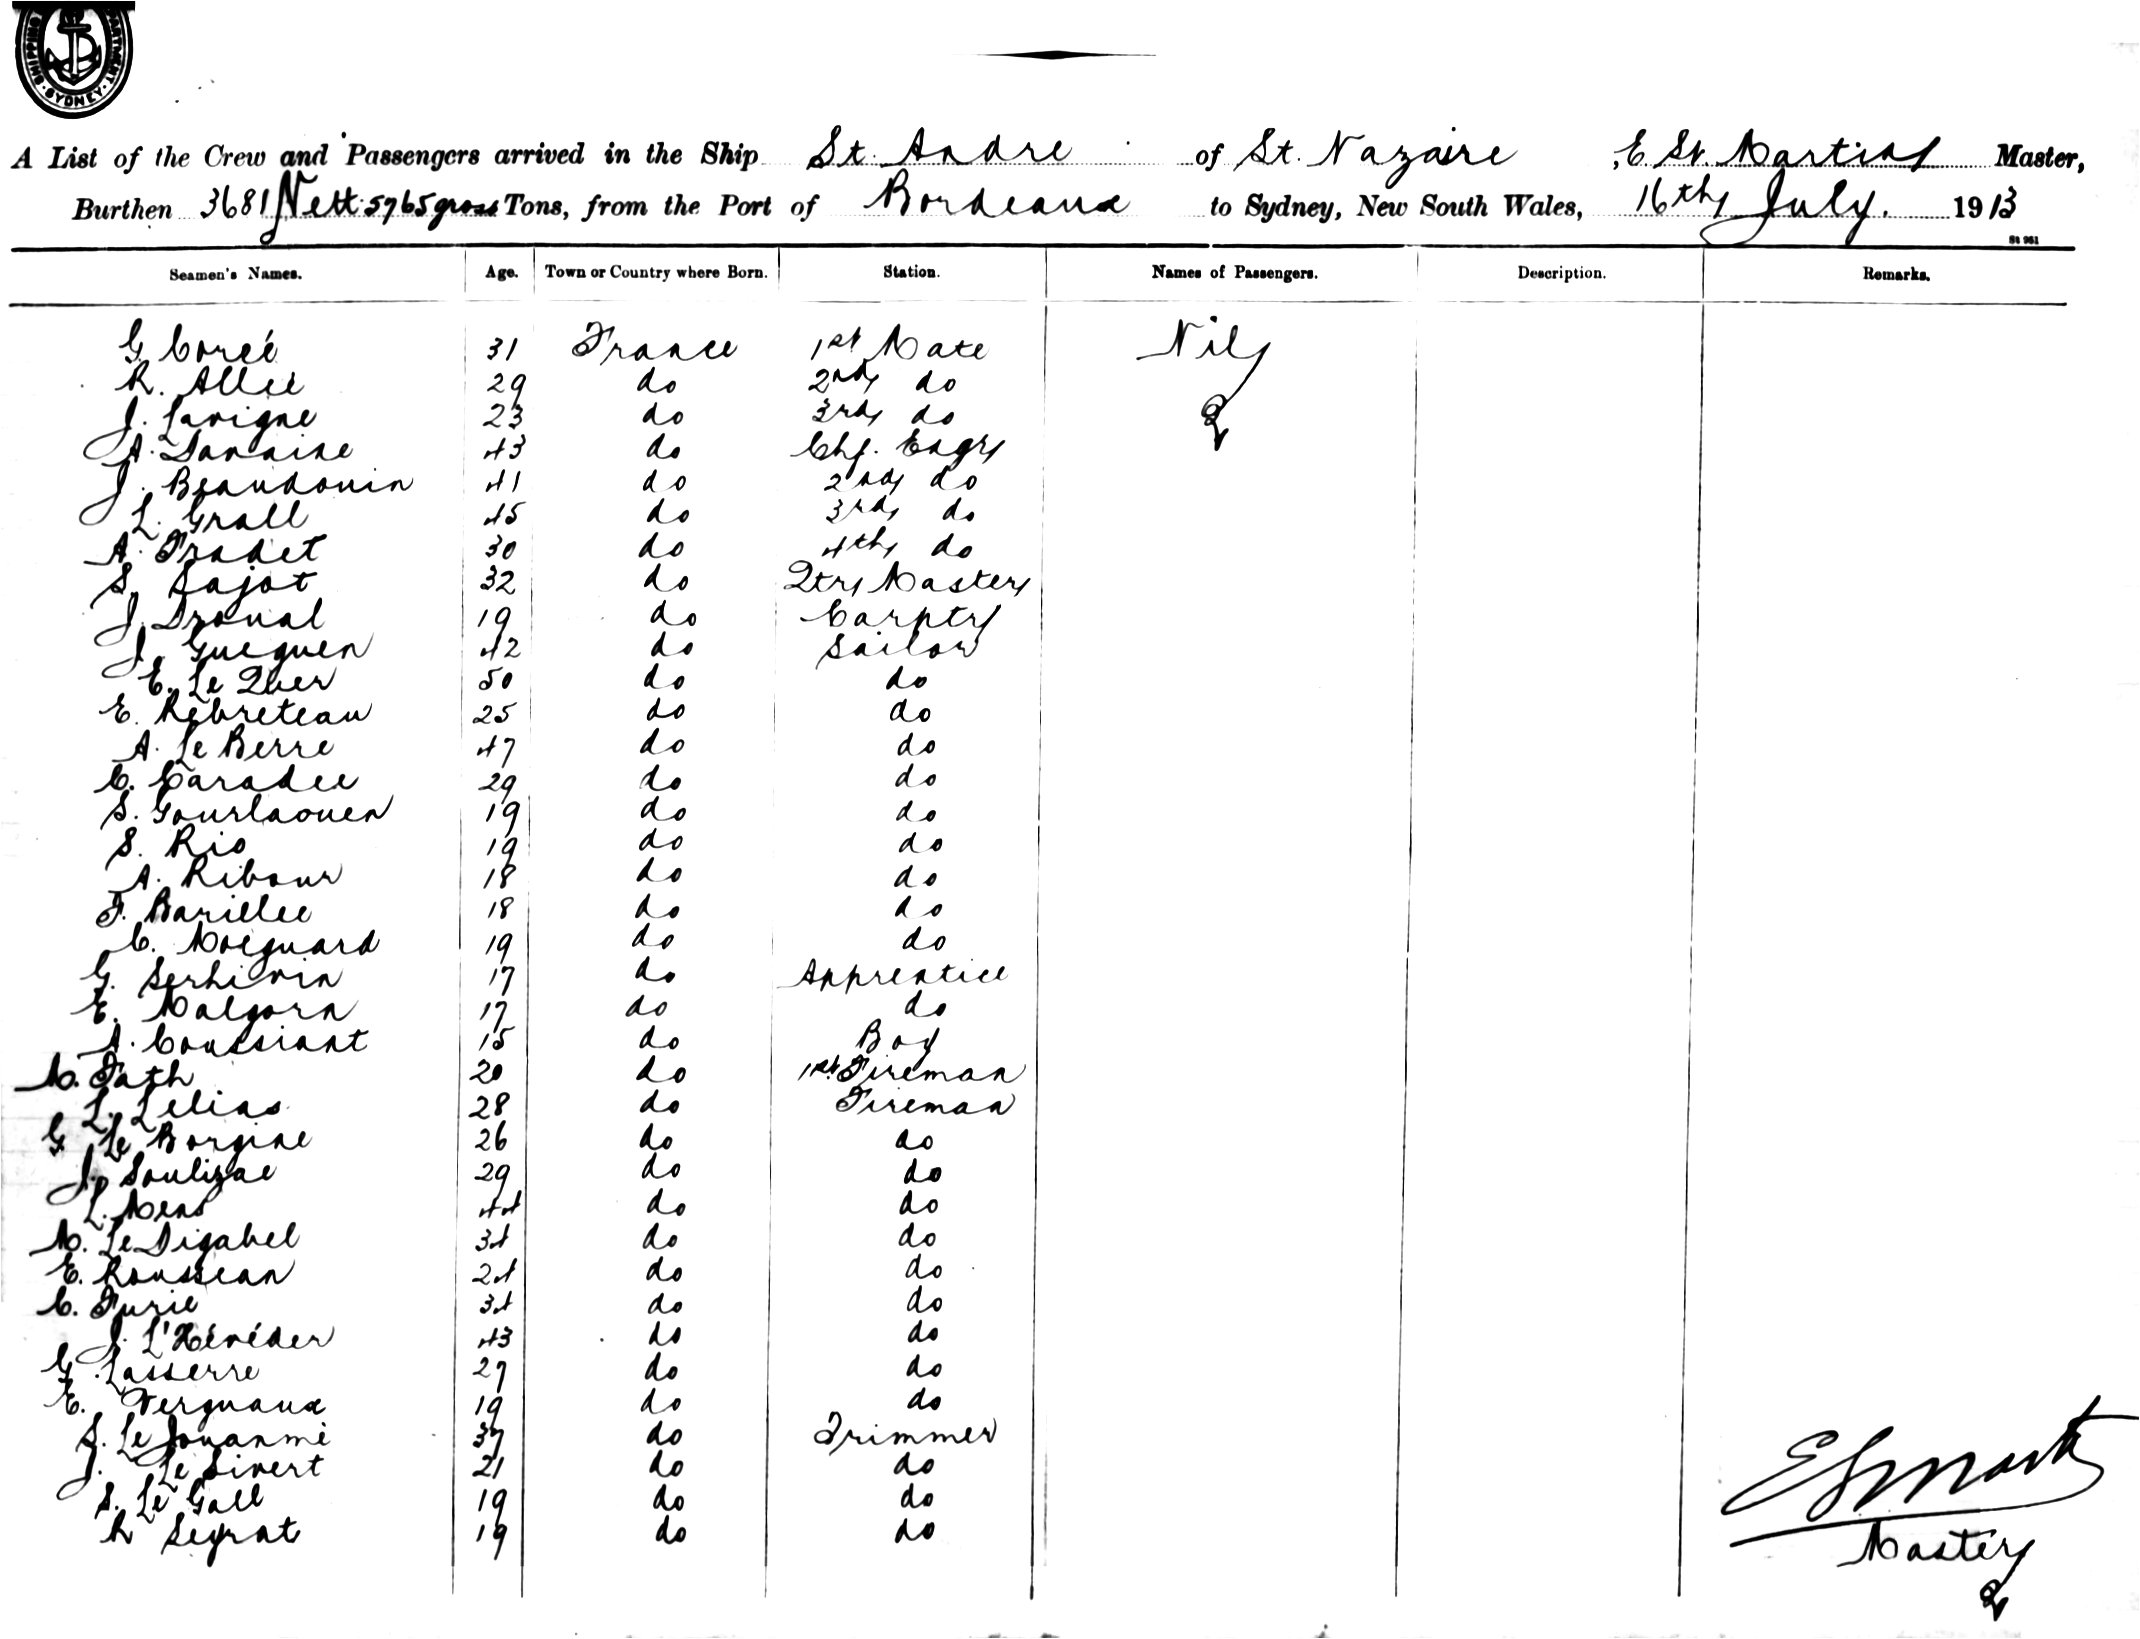 SHIPPING DEPARTMENT SYDNEY
A List of the Crew and Passengers arrived in the Ship St. Andre of St. Nazaire, E St. Martin Master,
Burthen 3681 Nett 5765 gross Tons, from the Port of Bordeaux to Sydney, New South Wales, 16th July. 1913
St 961
Seamen's Names. Age. Town or Country where Born. Station. Names of Passengers. Description. Remarks.
G. Coreé 31 France 1st Mate Nil
R. Alleé 29 do 2nd do
J. Lavigne 23 do 3rd do
A. Danaire 43 do Chf. Engr
J. Beaudouin 41 do 2nd do
L. Grall 45 do 3rd do
A. Fradet 30 do 4th do
S. Lajat 32 do Qtr Master
J. Droual 19 do Carptr
J. Gueguen 42 do Sailor
E. Le Quer 50 do do
E. Rebreteau 25 do do
A. Le Berre 47 do do
C. Caradec 29 do do
S. Gourlaouen 19 do do
S. Rio 19 do do
A. Ribour 18 do do
F. Barillec 18 do do
C. Mocquard 19 do do
G. Serhivin 17 do Apprentice
E. Malgorn 17 do do
A. Coussiant 15 do Boy
M. Fath 20 do 1st Fireman
L. Lelias 28 do Fireman
G Le Borgine 26 do do
J. Soulizac 29 do do
L. Mens 44 do do
M. Le Digabel 34 do do
E. Rousseau 24 do do
C. Furic 34 do do
J. L'Hévéder 43 do do
G. Lasserre 27 do do
E. Vergnaux 19 do do
S. Le Jouanmé 37 do Trimmer
J. Le Sivert 21 do do
S. Le Gall 19 do do
R Segrat 19 do do
Master